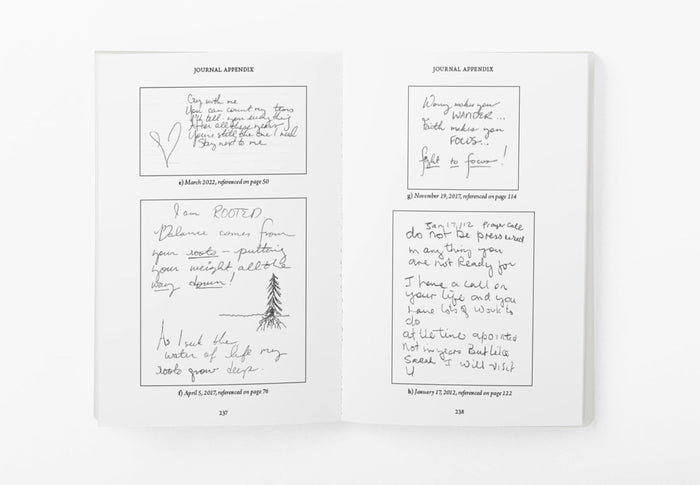 JOURNAL APPENDIX
Cry with me
You can count my tears
I'll tell you everything
After all these years
You're still the one I need
Stay next to me
e) March 2022, referenced on page 50
I am ROOTED
Balance comes from
your roots – putting
your weight all the
way down!
As I seek the
water of life my
roots grow deep.
f) April 5, 2017, referenced on page 76
237
JOURNAL APPENDIX
Worry makes you
WANDER...
Faith makes you
FOCUS...
fight to focus!
g) November 19, 2017, referenced on page 114
Jan 17/12 Prayer Call
do not be pressured
in anything you
are not Ready for
I have a call on
your life and you
have lots of work to
do
at the time
not in years But like
I will visit
U
h) January 17, 2012, referenced on page 122
238